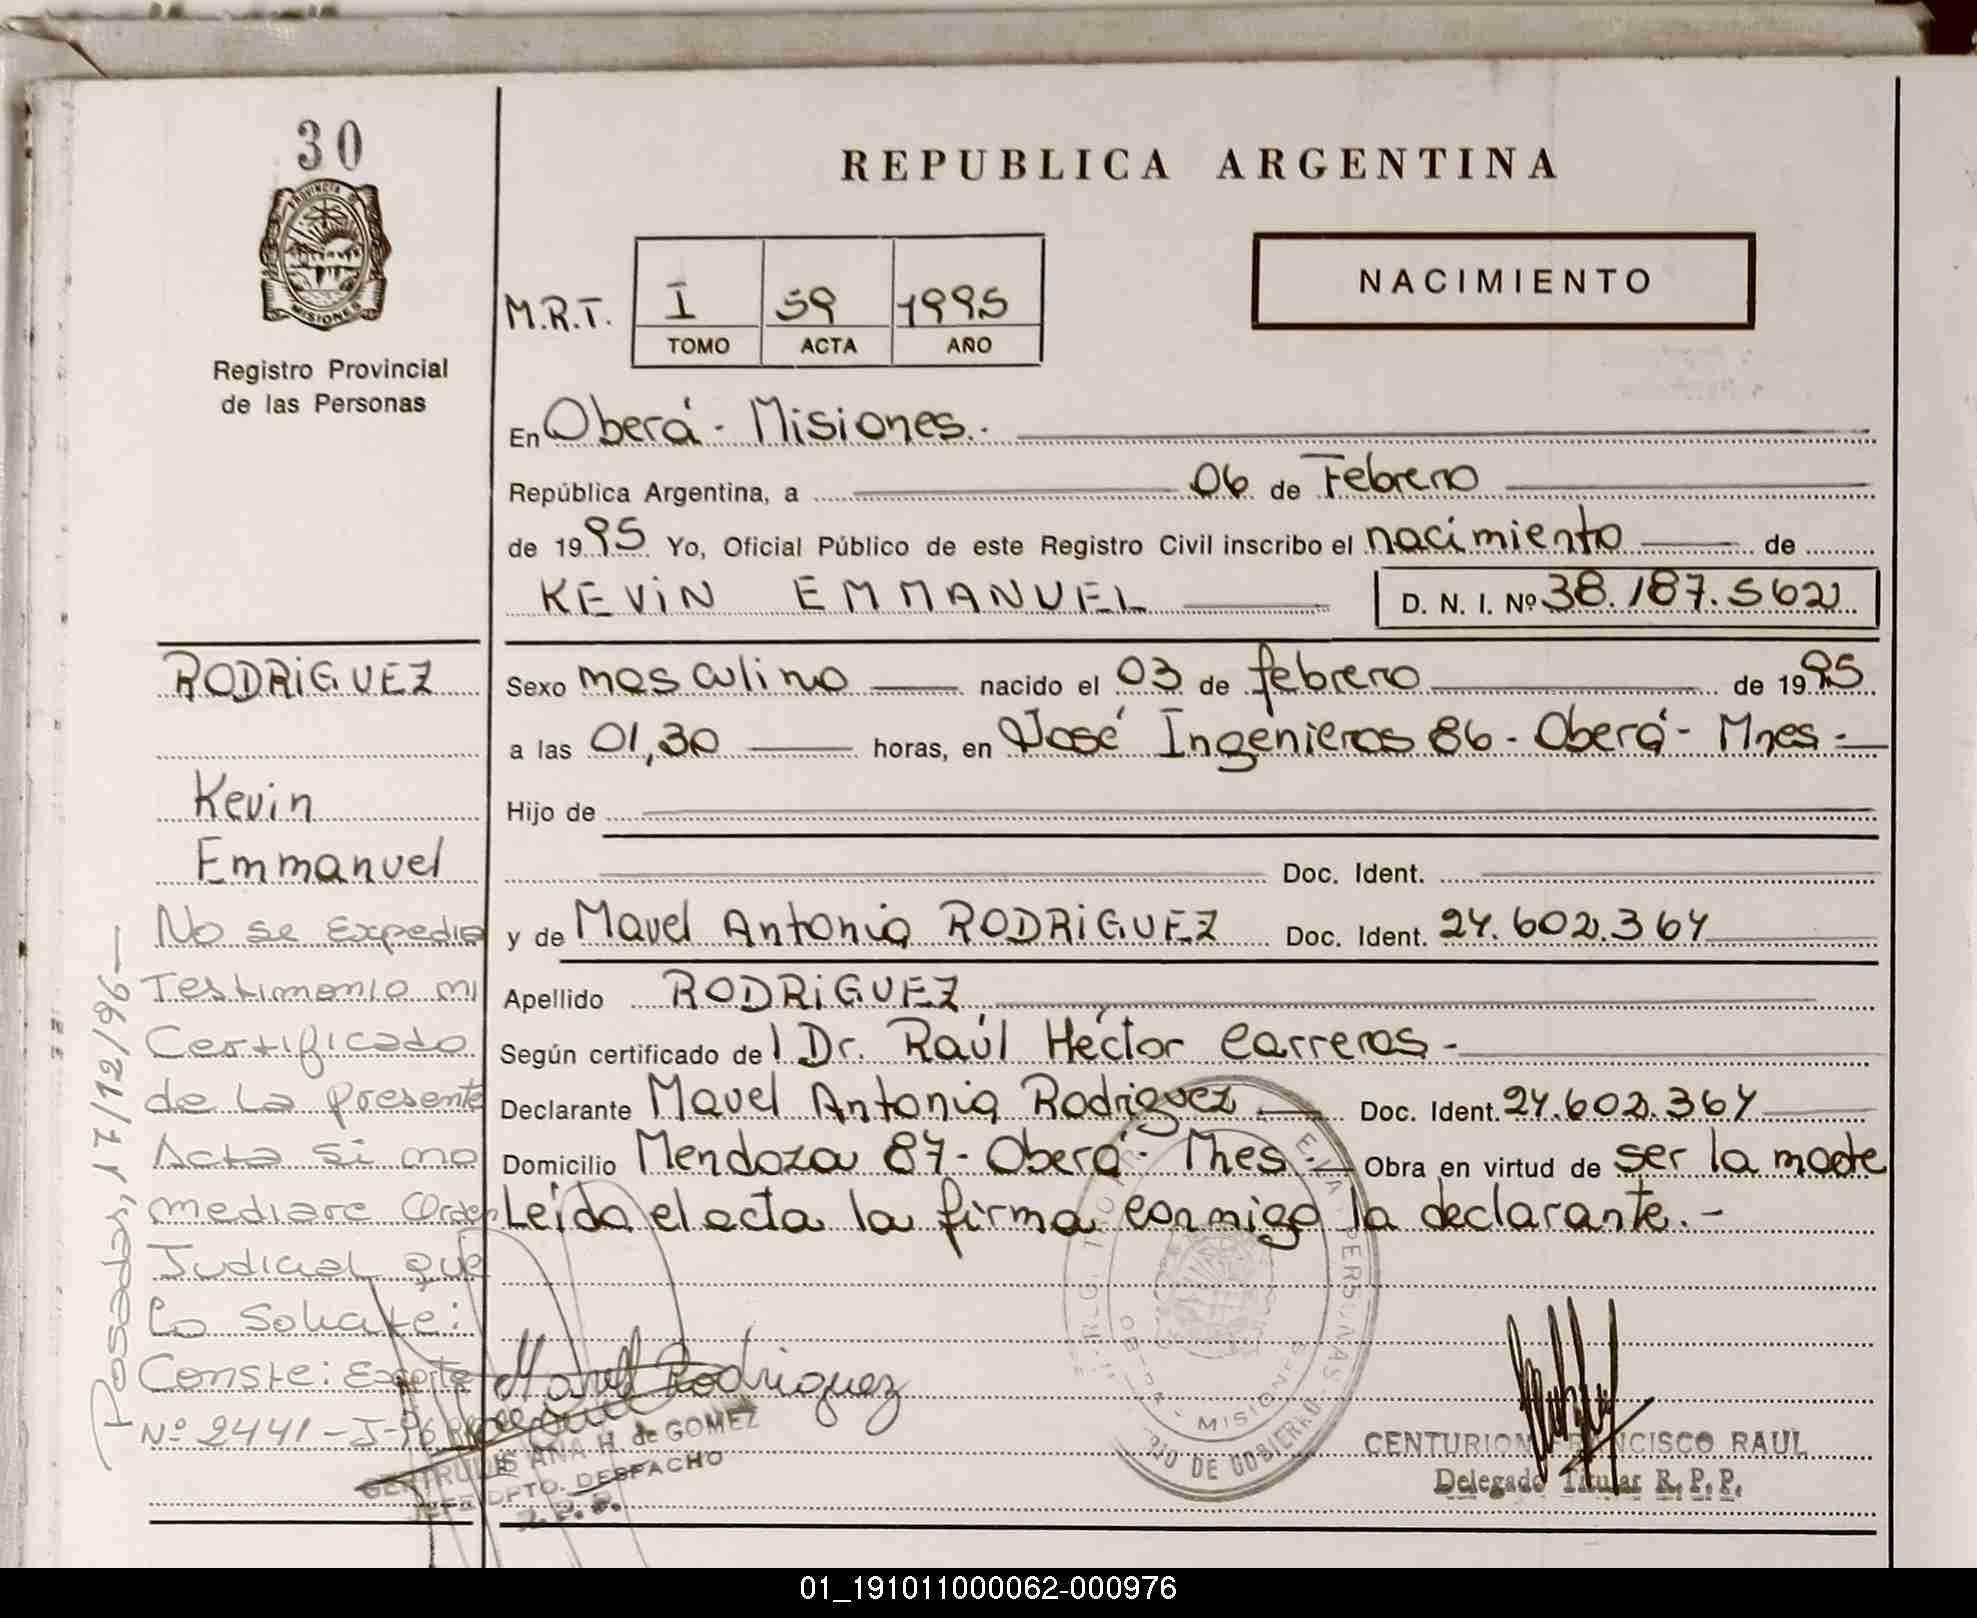 30
PROVINCIA
MISIONES
Registro Provincial
de las Personas
REPUBLICA ARGENTINA
NACIMIENTO
M.R.T. I 59 1995
TOMO ACTA AÑO
En Oberá - Misiones.-
República Argentina, a 06 de Febrero
de 1995 Yo, Oficial Público de este Registro Civil inscribo el nacimiento de
KEViN EMMANUEL D. N. I. Nº 38.187.562
Sexo masculino nacido el 03 de febrero de 1995
a las 01,30 horas, en José Ingenieros 86 - Oberá - Mnes -
Hijo de
Doc. Ident.
y de Mavel Antonia RODRiGUEZ Doc. Ident. 24.602.364
Apellido RODRiGUEZ
Según certificado de l Dr. Raúl Héctor Carreras -
Declarante Mavel Antonia Rodriguez Doc. Ident. 24.602.364
Domicilio Mendoza 87 - Oberá - Mnes.- Obra en virtud de ser la madre
Leída el acta la firma conmigo la declarante.-
RODRiGUEZ
Kevin
Emmanuel
No se Expedia
Testimonio ni
Certificado
de La presente
Acta si no
mediare Orden
Judicial que
Lo Solicite:
Conste: Expte
Nº 2441-J-96
Posadas, 17/12/96-
Mavel Rodriguez
GERTRUDIS ANA H. de GOMEZ
JEFE DPTO. DESPACHO
R.P.P.
PERSONAS
MISIONES
RIO DE GOBIERNO
CENTURION FRANCISCO RAUL
Delegado Titular R. P. P.
01_191011000062-000976